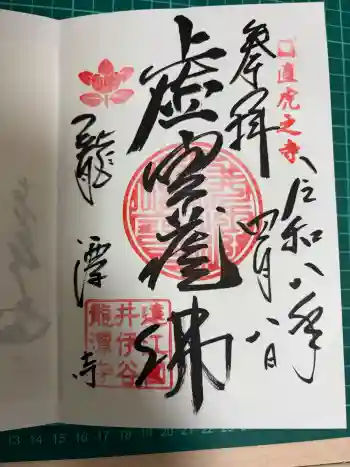 直虎之寺
令和八年
奉拝
四月八日
虚空蔵佛
龍潭寺
遠江国
井伊谷
龍潭寺
13 14 15 16 17 18 19 20 21 22 23